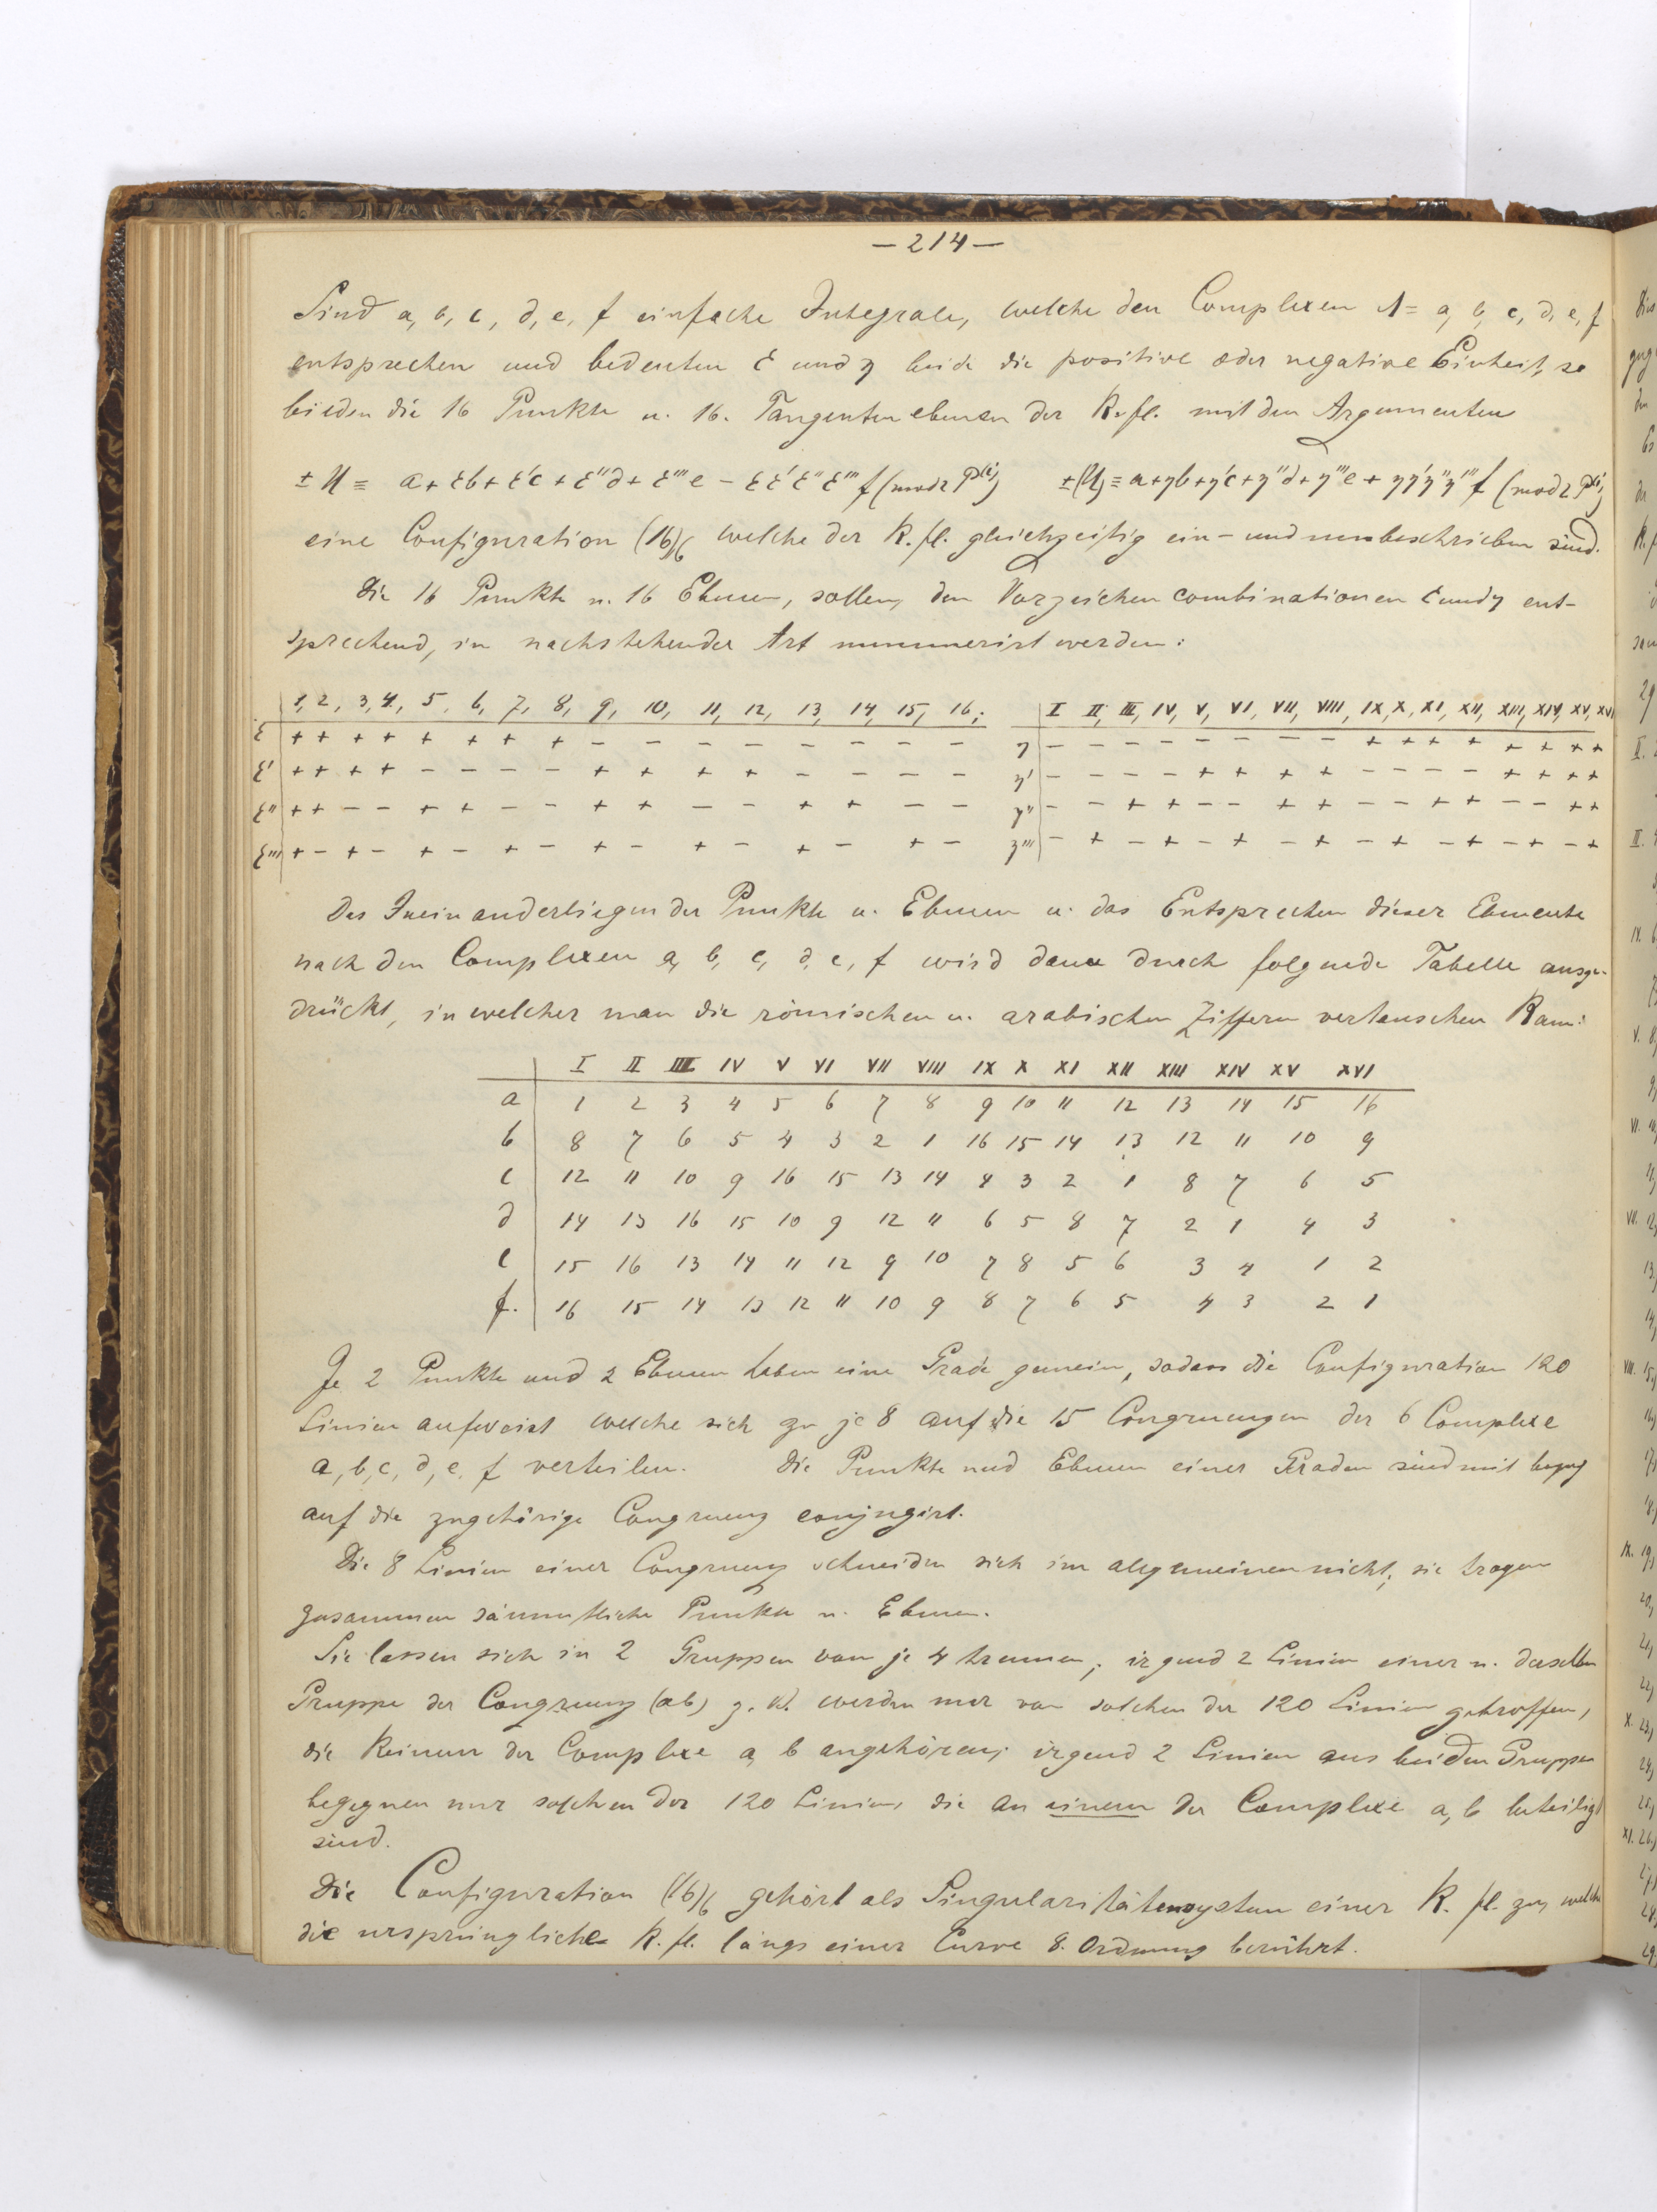 — 214 —
Sind a, b, c, d, e, f einfache Integrale, welche den Complexen Λ = a, b, c, d, e, f
entsprechen und bedeuten ε und η beide die positive oder negative Einheit, so
bilden die 16 Punkte u. 16. Tangentenebenen der K.fl. mit den Argumenten
± U ≡ a + εb + ε'c + ε''d + ε'''e − εε'ε''ε''' f (mod 2 P⁽ⁱ⁾) ±(U) ≡ a+ηb+η'c+η''d+η'''e + ηη'η''η''' f (mod 2 P⁽ⁱ⁾)
eine Configuration (16)₆ welche der K.fl. gleichzeitig ein- und umbeschrieben sind.
Die 16 Punkte u. 16 Ebenen, sollen, den Vorzeichencombinationen ε und η ent-
sprechend, in nachstehender Art nummerirt werden:
1, 2, 3, 4, 5, 6, 7, 8, 9, 10, 11, 12, 13, 14, 15, 16; I II, III, IV, V, VI, VII, VIII, IX, X, XI, XII, XIII, XIV, XV, XVI
ε + + + + + + + + − − − − − − − − η − − − − − − − − + + + + + + + +
ε' + + + + − − − − + + + + − − − − η' − − − − + + + + − − − − + + + +
ε'' + + − − + + − − + + − − + + − − η'' − − + + − − + + − − + + − − + +
ε''' + − + − + − + − + − + − + − + − η''' − + − + − + − + − + − + − + − +
Das Ineinanderliegen der Punkte u. Ebenen u. das Entsprechen dieser Elemente
nach den Complexen a, b, c, d, e, f wird dann durch folgende Tabelle ausge-
drückt, in welcher man die römischen u. arabischen Ziffern vertauschen kann:
I II III IV V VI VII VIII IX X XI XII XIII XIV XV XVI
a 1 2 3 4 5 6 7 8 9 10 11 12 13 14 15 16
b 8 7 6 5 4 3 2 1 16 15 14 13 12 11 10 9
c 12 11 10 9 16 15 13 14 4 3 2 1 8 7 6 5
d 14 13 16 15 10 9 12 11 6 5 8 7 2 1 4 3
e 15 16 13 14 11 12 9 10 7 8 5 6 3 4 1 2
f. 16 15 14 13 12 11 10 9 8 7 6 5 4 3 2 1
Je 2 Punkte und 2 Ebenen haben eine Grade gemein, sodass die Configuration 120
Linien aufweist welche sich zu je 8 auf die 15 Congruenzen der 6 Complexe
a, b, c, d, e, f verteilen. Die Punkte und Ebenen einer Graden sind mit bezug
auf die zugehörige Congruenz conjugirt.
Die 8 Linien einer Congruenz schneiden sich im allgemeinen nicht; sie tragen
zusammen sämmtliche Punkte u. Ebenen.
Sie lassen sich in 2 Gruppen von je 4 trennen; irgend 2 Linien einer u. derselben
Gruppe der Congruenz (ab) z. B. werden nur von solchen der 120 Linien getroffen,
die keinem der Complexe a, b angehören; irgend 2 Linien aus beiden Gruppen
begegnen nur solchen der 120 Linien, die an einem der Complexe a, b beteiligt
sind.
Die Configuration (16)₆ gehört als Singularitätensystem einer K. fl. zu, welche
die ursprüngliche K. fl. längs einer Curve 8. Ordnung berührt.